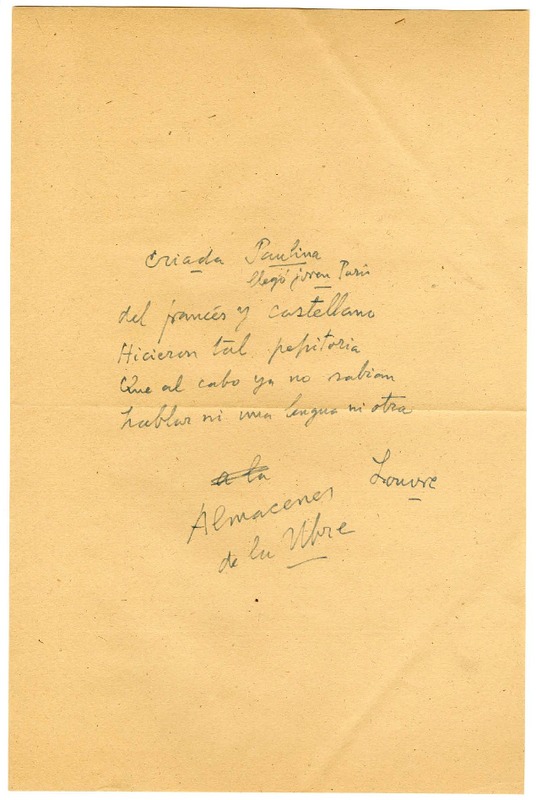 criada Paulina
llegó joven París
del francés y castellano
Hicieron tal pepitoria
Que al cabo ya no sabian
hablar ni una lengua ni otra
a la Louvre
Almacenes
de la Ubre